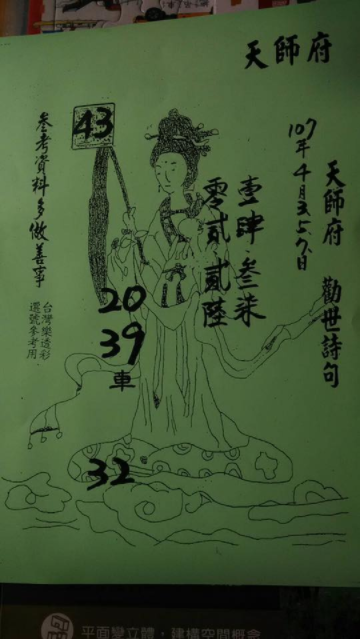 天師府
天師府 勸世詩句
107年4月3.5.7.8日
壹肆 叁柒
零貳 貳陸
43
20
39
車
32
參考資料多做善事
台灣樂透彩
選號參考用
平面變立體，建構空間概念